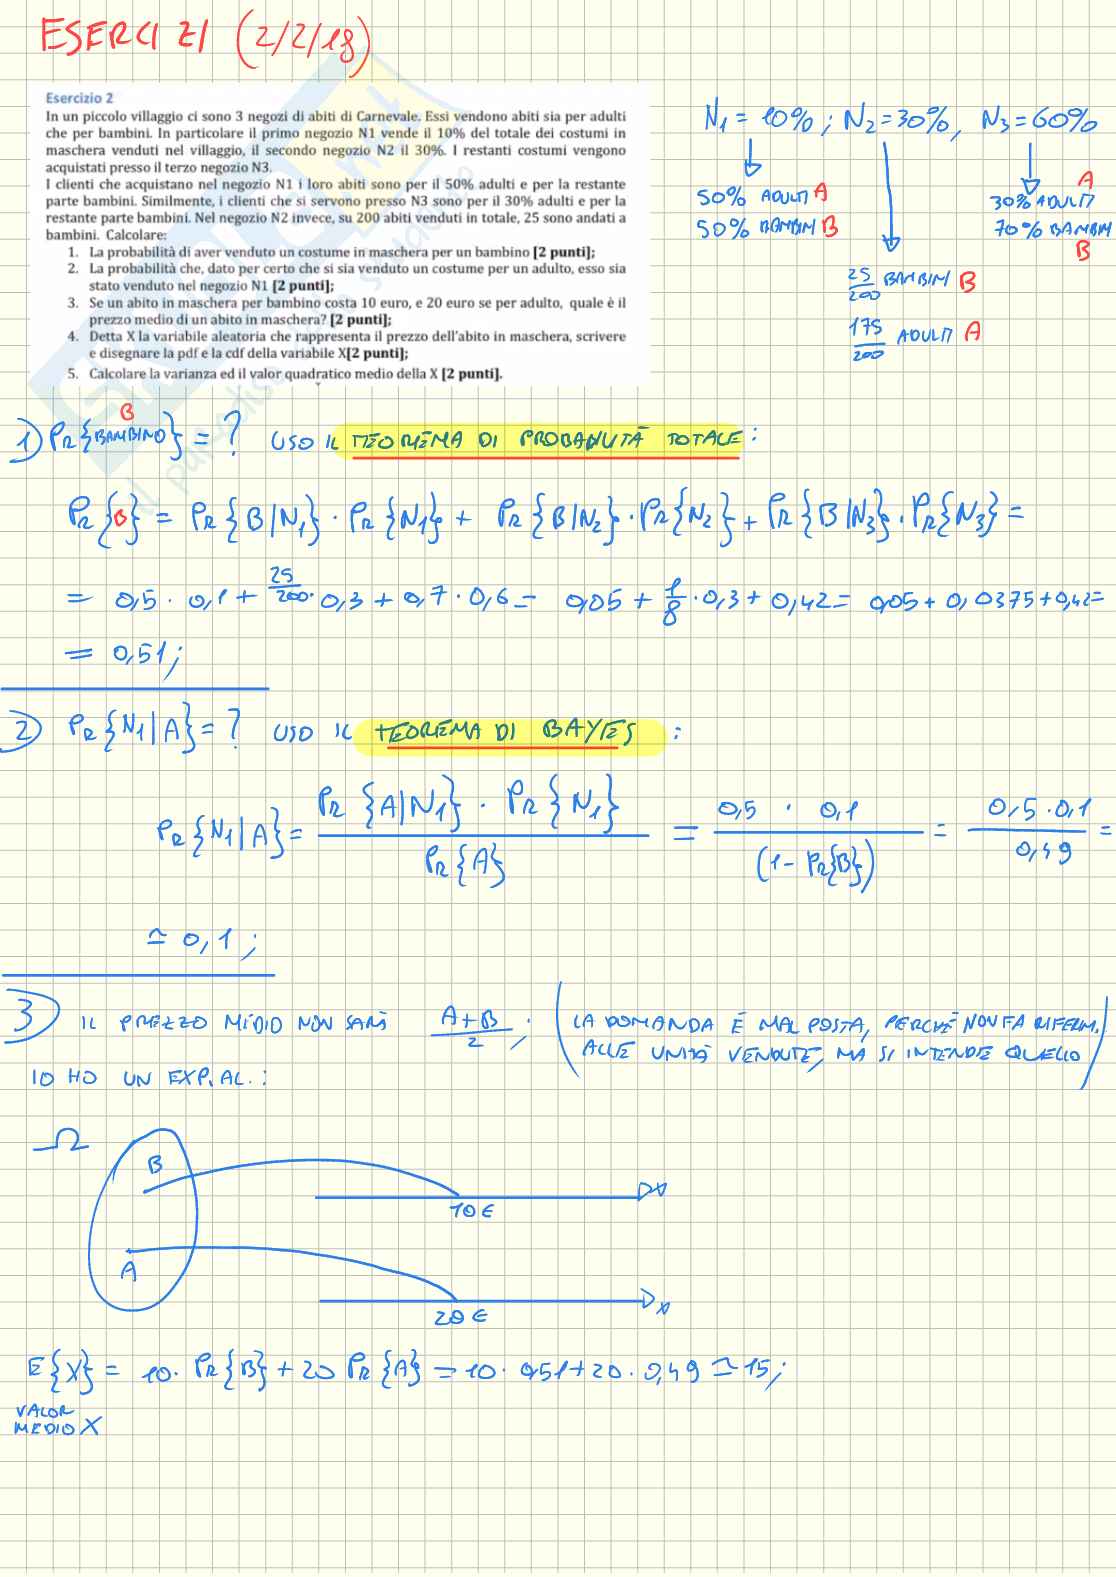 ESERCIZI (2/2/18)
Esercizio 2
In un piccolo villaggio ci sono 3 negozi di abiti di Carnevale. Essi vendono abiti sia per adulti
che per bambini. In particolare il primo negozio N1 vende il 10% del totale dei costumi in
maschera venduti nel villaggio, il secondo negozio N2 il 30%. I restanti costumi vengono
acquistati presso il terzo negozio N3.
I clienti che acquistano nel negozio N1 i loro abiti sono per il 50% adulti e per la restante
parte bambini. Similmente, i clienti che si servono presso N3 sono per il 30% adulti e per la
restante parte bambini. Nel negozio N2 invece, su 200 abiti venduti in totale, 25 sono andati a
bambini. Calcolare:
1. La probabilità di aver venduto un costume in maschera per un bambino [2 punti];
2. La probabilità che, dato per certo che si sia venduto un costume per un adulto, esso sia
stato venduto nel negozio N1 [2 punti];
3. Se un abito in maschera per bambino costa 10 euro, e 20 euro se per adulto, quale è il
prezzo medio di un abito in maschera? [2 punti];
4. Detta X la variabile aleatoria che rappresenta il prezzo dell'abito in maschera, scrivere
e disegnare la pdf e la cdf della variabile X[2 punti];
5. Calcolare la varianza ed il valor quadratico medio della X [2 punti].
N₁ = 10% ; N₂ = 30%, N₃ = 60%
50% ADULTI A
50% BAMBINI B
A
30% ADULTI
70% BAMBINI
B
25/200 BAMBINI B
175/200 ADULTI A
B
1) PR{BAMBINO} = ? USO IL TEOREMA DI PROBABILITÀ TOTALE :
PR{B} = PR{B|N₁} · PR{N₁} + PR{B|N₂} · PR{N₂} + PR{B|N₃} · PR{N₃} =
= 0,5 · 0,1 + 25/200 · 0,3 + 0,7 · 0,6 = 0,05 + 1/8 · 0,3 + 0,42 = 0,05 + 0,0375 + 0,42 =
= 0,51 ;
2) PR{N₁|A} = ? USO IL TEOREMA DI BAYES :
PR{N₁|A} = PR{A|N₁} · PR{N₁} / PR{A} = 0,5 · 0,1 / (1 - PR{B}) = 0,5 · 0,1 / 0,49 =
≃ 0,1 ;
3) IL PREZZO MEDIO NON SARÀ A+B/2 ; (LA DOMANDA È MAL POSTA, PERCHÉ NON FA RIFERIM.
ALLE UNITÀ VENDUTE, MA SI INTENDE QUELLO)
IO HO UN EXP. AL. :
Ω
B
10 €
X
A
20 €
X
E{X} = 10 · PR{B} + 20 PR{A} = 10 · 0,51 + 20 · 0,49 ≃ 15 ;
VALOR
MEDIO X